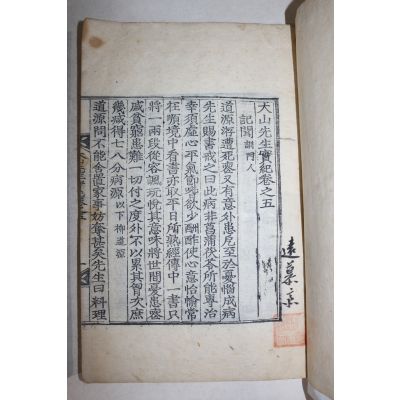 遠慕
大山先生實紀卷之五
記聞 訓門人
道源洊遭死喪又有意外患厄至於憂惱成病
先生賜書戒之曰此病非菖蒲茯苓所能專治
幸須虛心平氣節嗜欲少酬酢使心意怡愉常
在順境中看書亦取平日所熟經傳中一書只
將一兩段從容諷玩悅其意味將世間憂患喪
戚貧窮患難一切付之度外不以累其胷次庶
幾減得七八分病源 以下柳道源
道源問不能舍置家事妨奪甚矣先生曰料理